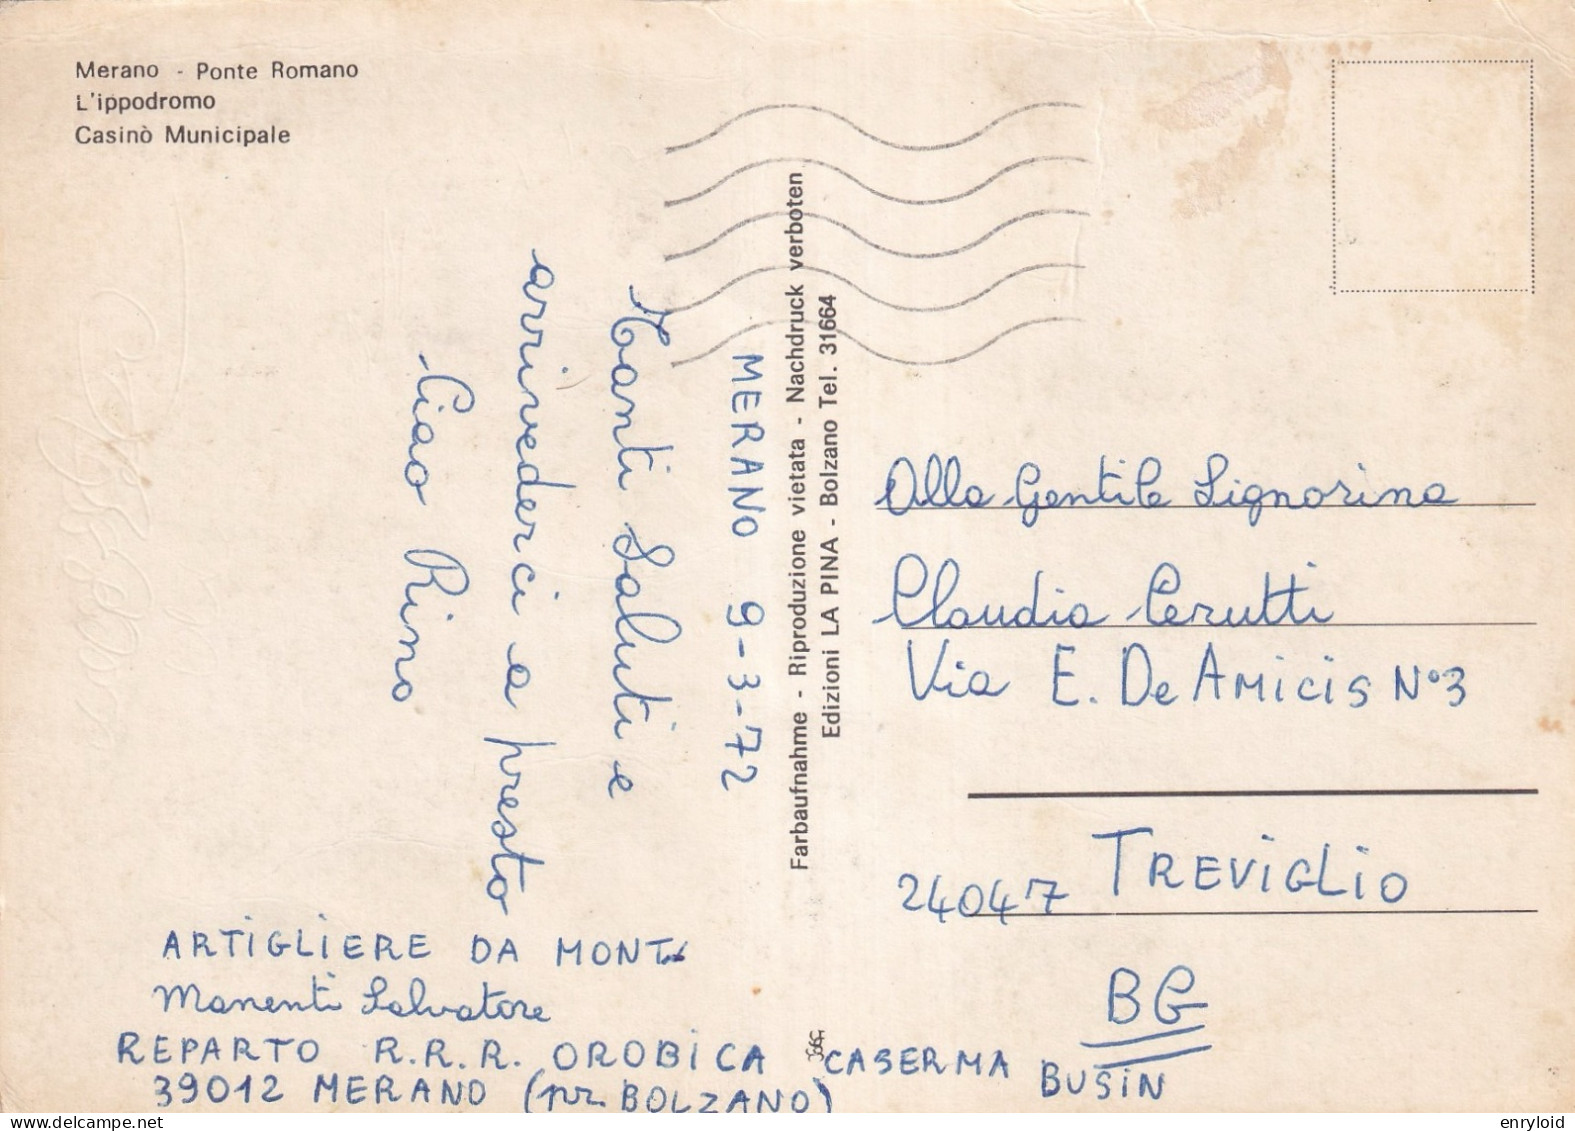 Merano - Ponte Romano
L'ippodromo
Casinò Municipale
MERANO 9-3-72
Tanti Saluti e
arrivederci a presto
Ciao Rino
Farbaufnahme - Riproduzione vietata - Nachdruck verboten
Edizioni LA PINA - Bolzano Tel. 31664
Alla Gentile Signorina
Claudia Cerutti
Via E. De AMICIS N°3
24047 TREVIGLIO
BG
ARTIGLIERE DA MONT.
Manenti Salvatore
REPARTO R.R.R. OROBICA CASERMA BUSIN
39012 MERANO (pr. BOLZANO)
enryloid
delcampe.net